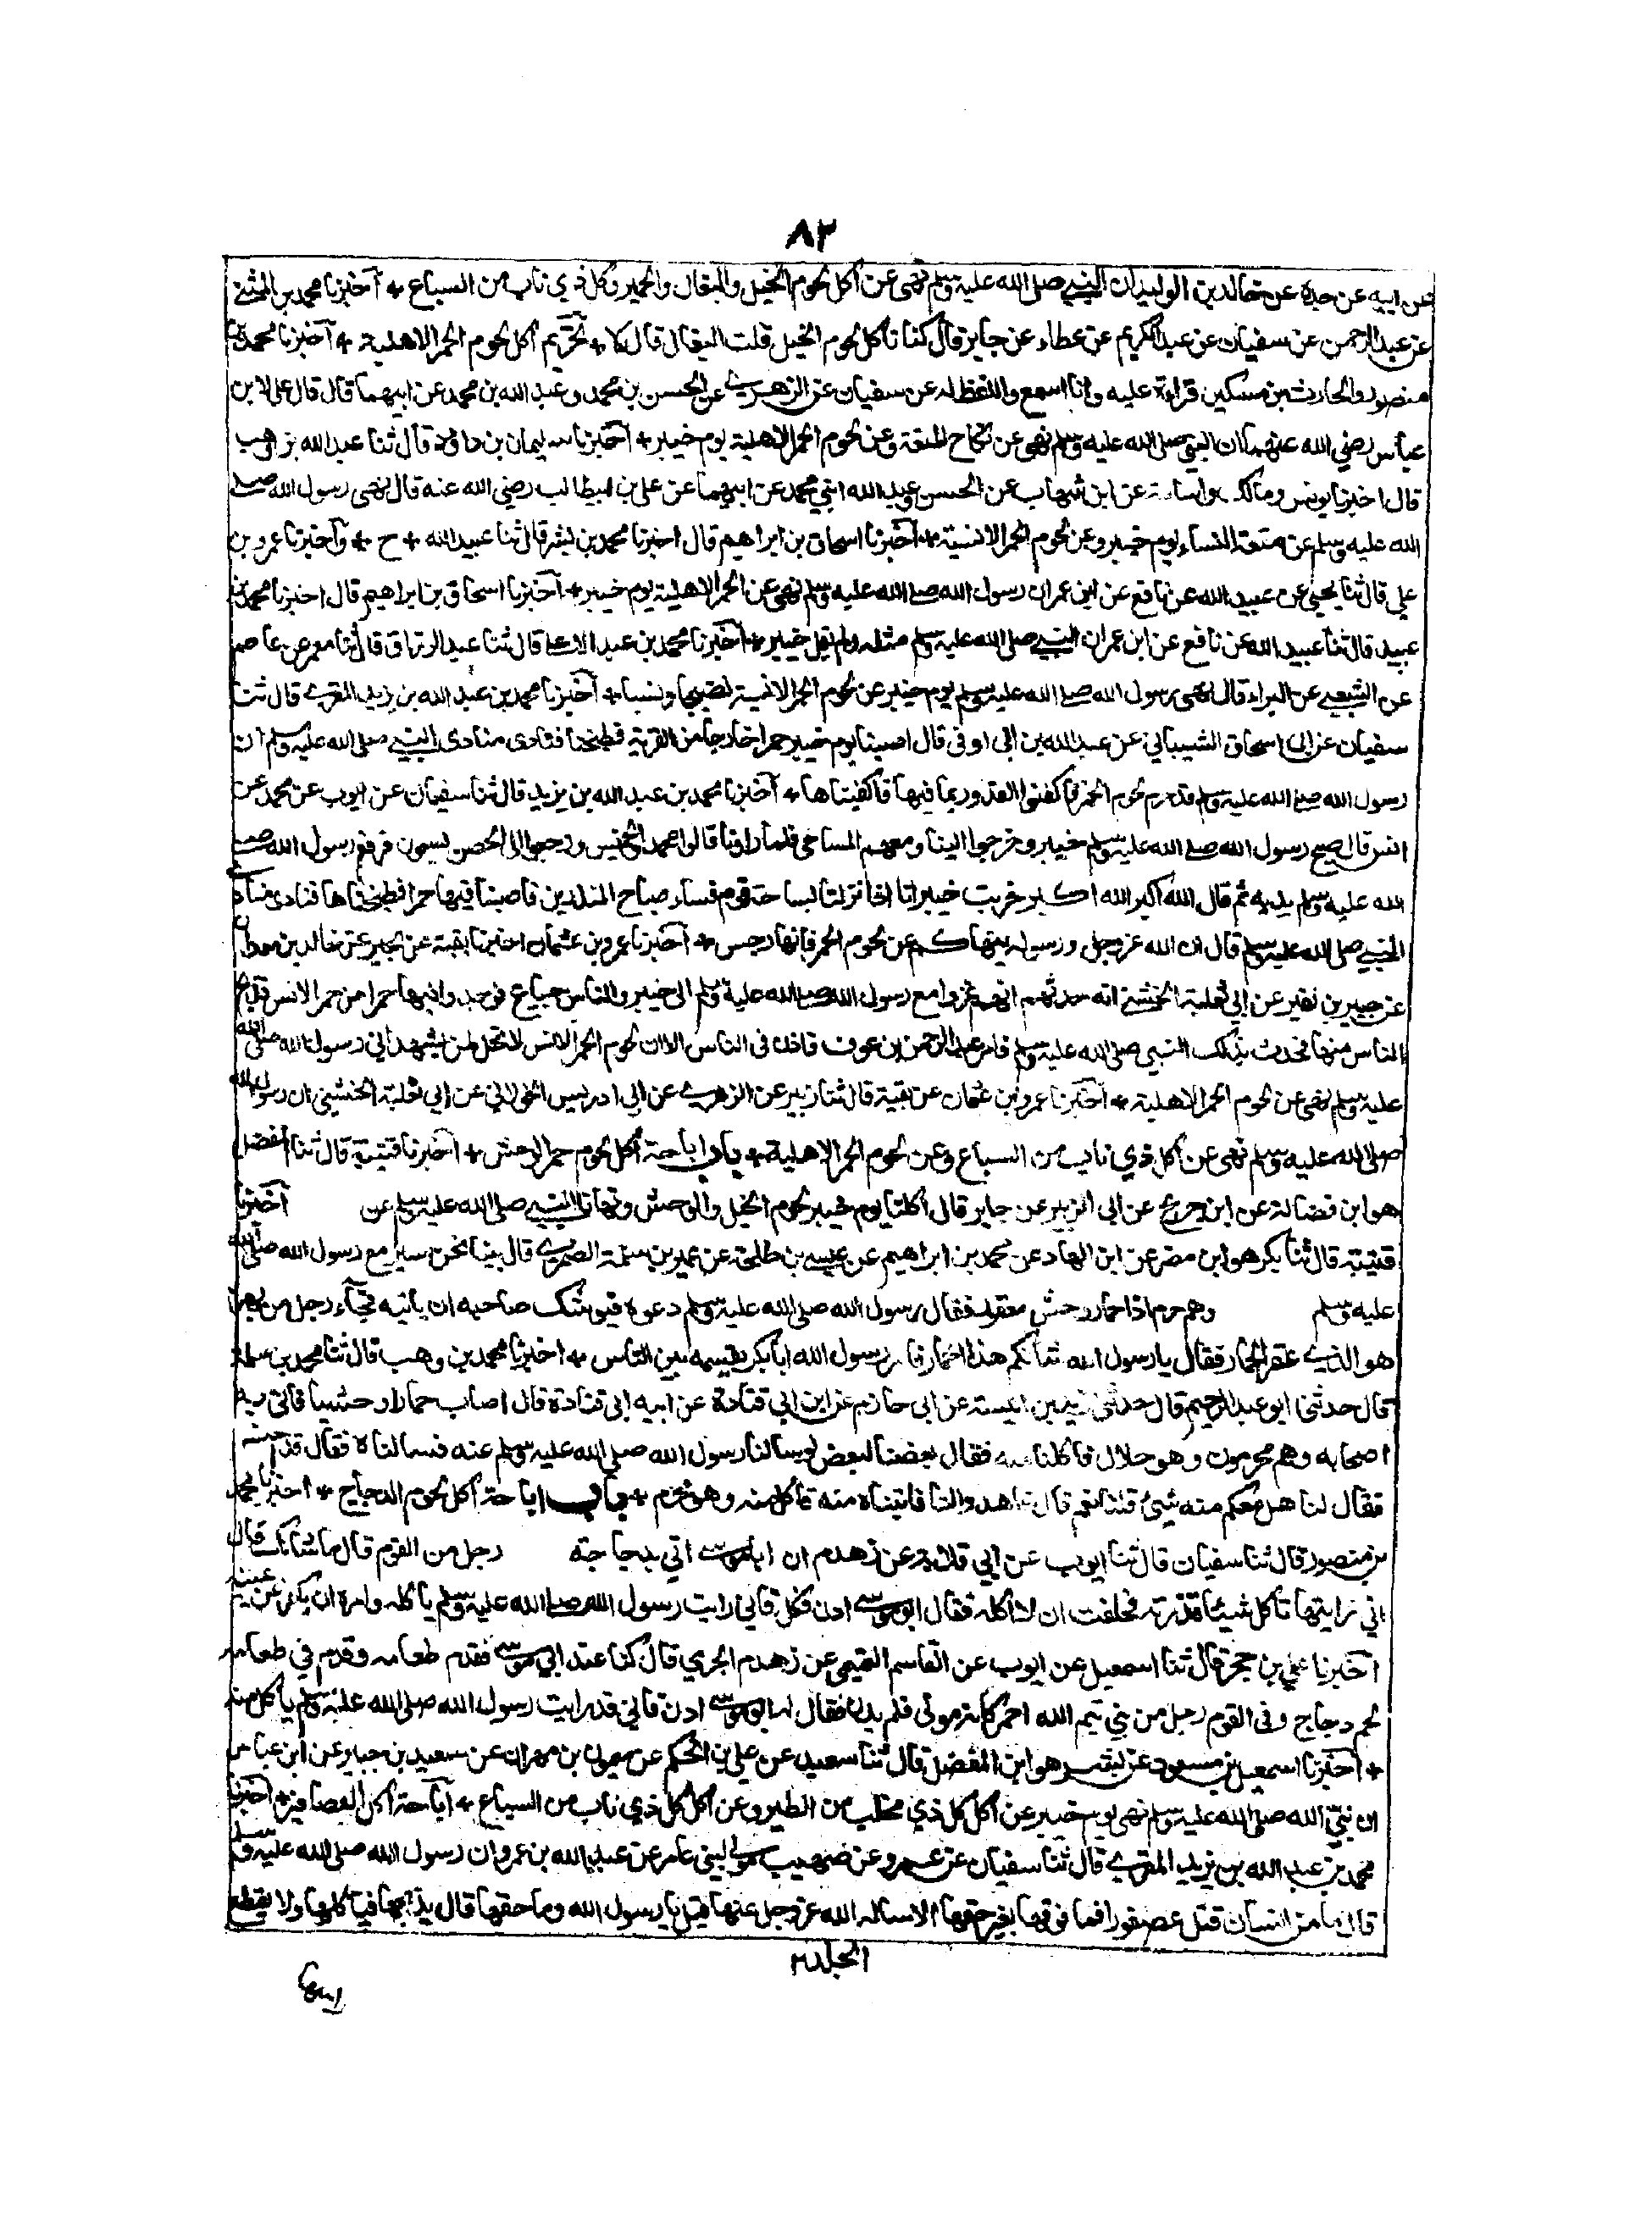 ٨٣
عن ابيه عن جده عن خالد بن الوليد ان النبي صلى الله عليه وسلم نهى عن اكل لحوم الخيل والبغال والحمير وكل ذي ناب من السباع + اخبرنا محمد بن المثنى
عن عبد الرحمن عن سفيان عن عبد الكريم عن عطاء عن جابر قال كنا ناكل لحوم الخيل قلت البغال قال لا + تحريم اكل لحوم الحمر الاهلية + اخبرنا محمد بن
منصور والحارث بن مسكين قراءة عليه وانا اسمع واللفظ له عن سفيان عن الزهري عن الحسن بن محمد وعبد الله بن محمد عن ابيهما قال قال علي لابن
عباس رضي الله عنهما ان النبي صلى الله عليه وسلم نهى عن نكاح المتعة وعن لحوم الحمر الاهلية يوم خيبر + اخبرنا سليمان بن داود قال ثنا عبد الله بن وهب
قال اخبرنا يونس ومالك واسامة عن ابن شهاب عن الحسن وعبد الله ابني محمد عن ابيهما عن علي بن ابيطالب رضي الله عنه قال نهى رسول الله صلى
الله عليه وسلم عن متعة النساء يوم خيبر وعن لحوم الحمر الانسية + اخبرنا اسحاق بن ابراهيم قال اخبرنا محمد بن بشر قال ثنا عبيد الله + ح + واخبرنا عمرو بن
علي قال ثنا يحيى عن عبيد الله عن نافع عن ابن عمر ان رسول الله صلى الله عليه وسلم نهى عن الحمر الاهلية يوم خيبر + اخبرنا اسحاق بن ابراهيم قال اخبرنا محمد بن
عبيد قال ثنا عبيد الله عن نافع عن ابن عمر ان النبي صلى الله عليه وسلم مثله ولم يقل خيبر + اخبرنا محمد بن عبد الاعلى قال ثنا عبد الرزاق قال ثنا معمر عن عاصم
عن الشعبي عن البراء قال نهى رسول الله صلى الله عليه وسلم يوم خيبر عن لحوم الحمر الانسية نضيجا ونيا + اخبرنا محمد بن عبد الله بن يزيد المقرئ قال ثنا
سفيان عن ابي اسحاق الشيباني عن عبد الله بن ابي اوفى قال اصبنا يوم خيبر حمرا خارجا من القرية فطبخنا فنادى منادي النبي صلى الله عليه وسلم ان
رسول الله صلى الله عليه وسلم قد حرم لحوم الحمر فاكفئوا القدور بما فيها فاكفيناها + اخبرنا محمد بن عبد الله بن يزيد قال ثنا سفيان عن ايوب عن محمد عن
انس قال صبح رسول الله صلى الله عليه وسلم خيبر وخرجوا الينا ومعهم المساحي فلما راونا قالوا محمد والخميس ورجعوا الى الحصن يسعون فرفع رسول الله صلى
الله عليه وسلم يديه ثم قال الله اكبر الله اكبر خربت خيبر انا اذا نزلنا بساحة قوم فساء صباح المنذرين فاصبنا فيها حمرا فطبخناها فنادى مناد
النبي صلى الله عليه وسلم قال ان الله عز وجل ورسوله ينهاكم عن لحوم الحمر فانها رجس + اخبرنا عمرو بن عثمان اخبرنا بقية عن بحير عن خالد بن معدان
عن جبير بن نفير عن ابي ثعلبة الخشني انه حدثهم انهم غزوا مع رسول الله صلى الله عليه وسلم الى خيبر والناس جياع فوجدوا فيها حمرا من حمر الانس فذبح
الناس منها فحدث بذلك النبي صلى الله عليه وسلم فامر عبد الرحمن بن عوف فاذن في الناس الا ان لحوم الحمر الانس لا تحل لمن يشهد اني رسول الله صلى الله
عليه وسلم نهى عن لحوم الحمر الاهلية + اخبرنا عمرو بن عثمان عن بقية قال ثنا زبير عن الزهري عن ابي ادريس الخولاني عن ابي ثعلبة الخشني ان رسول الله
صلى الله عليه وسلم نهى عن اكل ذي ناب من السباع وعن لحوم الحمر الاهلية + باب اباحة اكل لحوم حمر الوحش + اخبرنا قتيبة قال ثنا المفضل
هو ابن فضالة عن ابن جريج عن ابي الزبير عن جابر قال اكلنا يوم خيبر لحوم الخيل والوحش ونهانا النبي صلى الله عليه وسلم عن اخبرنا
قتيبة قال ثنا بكر هو ابن مضر عن ابن الهاد عن محمد بن ابراهيم عن عيسى بن طلحة عن عمير بن سلمة الضمري قال بينا نحن نسير مع رسول الله صلى الله
عليه وسلم وهم حرم اذا حمار وحش معقور فقال رسول الله صلى الله عليه وسلم دعوه فيوشك صاحبه ان ياتيه فجاء رجل من بهز
هو الذي عقر الحمار فقال يا رسول الله شانكم هذا الحمار فامر رسول الله ابا بكر يقسمه بين الناس + اخبرنا محمد بن وهب قال ثنا محمد بن سلمة
قال حدثني ابو عبد الرحيم قال حدثني زيد بن انيسة عن ابي حازم عن ابن ابي قتادة عن ابيه ابي قتادة قال اصاب حمارا وحشيا فاتى به
اصحابه وهم محرمون وهو حلال فاكلنا منه فقال بعضنا لبعض لو سالنا رسول الله صلى الله عليه وسلم عنه فسالناه فقال قد احسنتم
فقال لنا هل معكم منه شيئ قلنا نعم قال فاهدوا لنا فاتيناه منه فاكل منه وهو محرم + باب اباحة اكل لحوم الدجاج + اخبرنا محمد
بن منصور قال ثنا سفيان قال ثنا ايوب عن ابي قلابة عن زهدم ان ابا موسى اتي بدجاجة رجل من القوم قال ما شانك قال
اني رايتها تاكل شيئا قذرته فحلفت ان لا اكله فقال ابو موسى ادن فكل فاني رايت رسول الله صلى الله عليه وسلم ياكله وامره ان يكفر عن يمينه
اخبرنا علي بن حجر قال ثنا اسمعيل عن ايوب عن القاسم التميمي عن زهدم الجرمي قال كنا عند ابي موسى فقدم طعامه وقدم في طعامه
لحم دجاج وفي القوم رجل من بني تيم الله احمر كانه مولى فلم يدن فقال له ابو موسى ادن فاني قد رايت رسول الله صلى الله عليه وسلم ياكل منه
+ اخبرنا اسمعيل بن مسعود عن بشر هو ابن المفضل قال ثنا سعيد عن علي بن الحكم عن ميمون بن مهران عن سعيد بن جبير عن ابن عباس
ان نبي الله صلى الله عليه وسلم نهى يوم خيبر عن اكل كل ذي مخلب من الطير وعن اكل كل ذي ناب من السباع + اباحة اكل العصافير + اخبرنا
محمد بن عبد الله بن يزيد المقرئ قال ثنا سفيان عن عمرو عن صهيب مولى بني عامر عن عبد الله بن عمرو ان رسول الله صلى الله عليه وسلم
قال ما من انسان قتل عصفورا فما فوقها بغير حقها الا ساله الله عز وجل عنها قيل يا رسول الله وما حقها قال يذبحها فياكلها ولا يقطع
الجلد٢